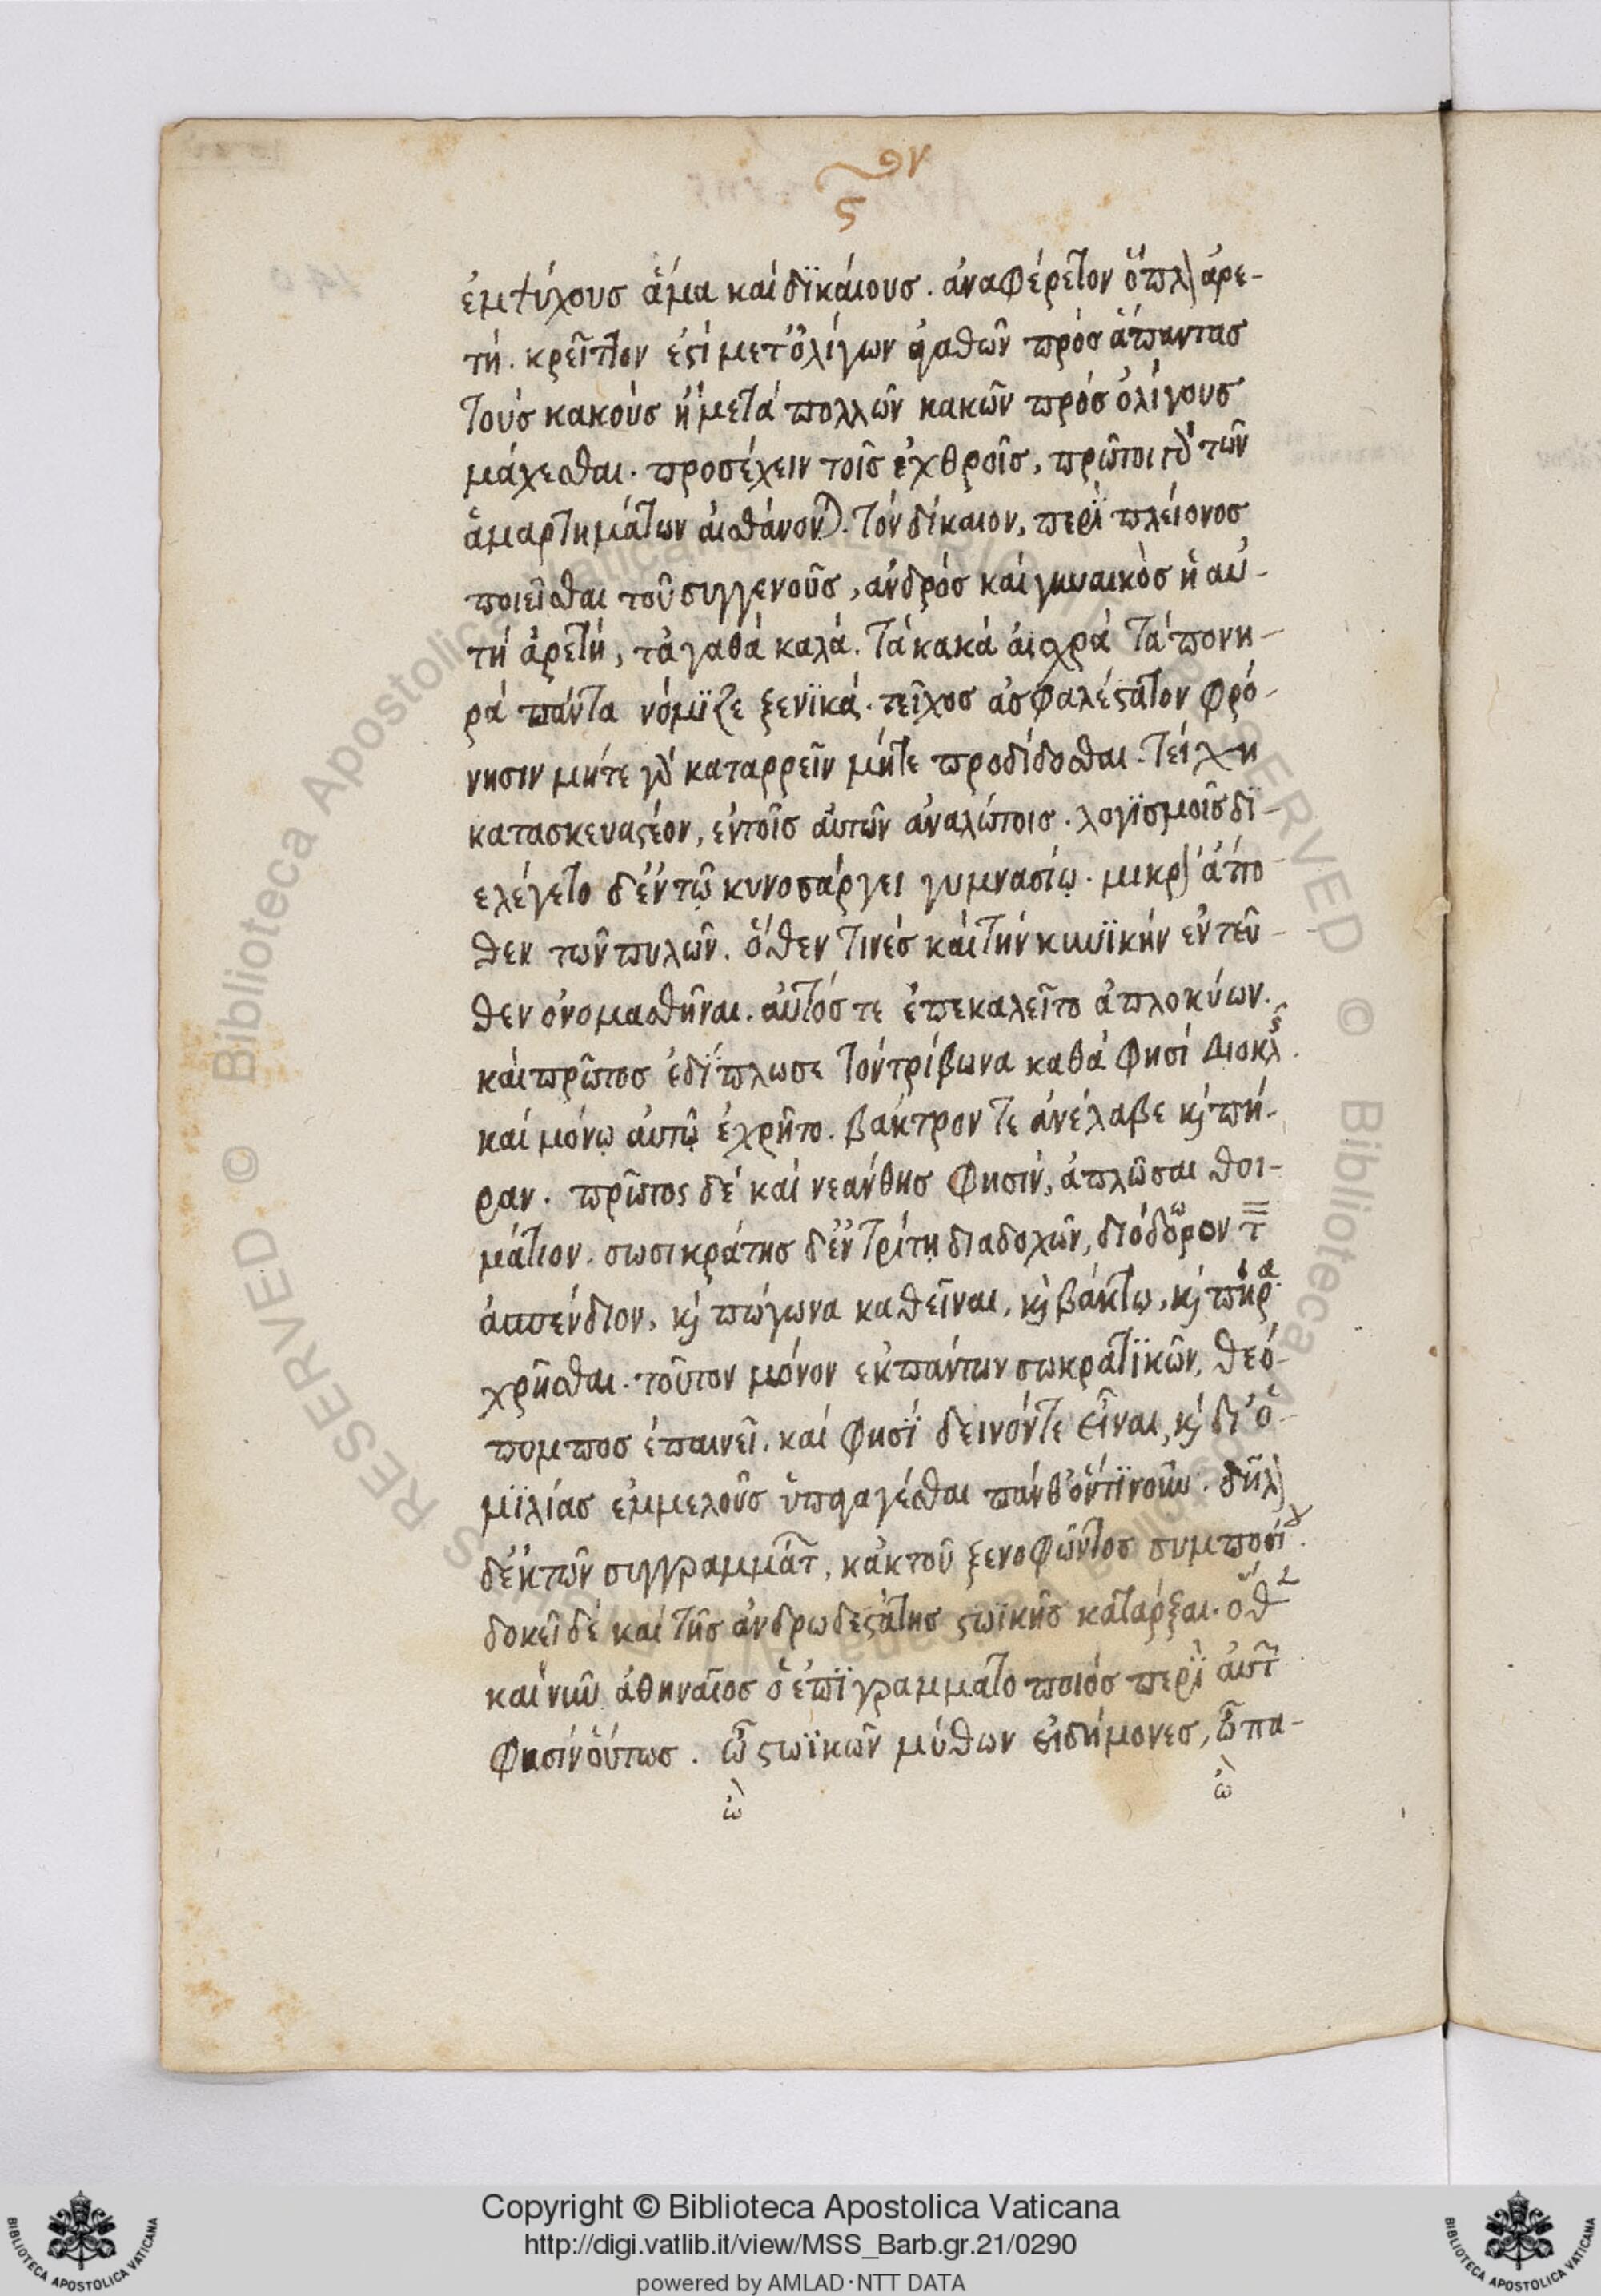 ἐμψύχους ἅμα καὶ δϊκαίους. ἀναφέρετον ὅπλ ἀρε-
τή. κρεῖττον ἐστὶ μετ' ὀλίγων ἀγαθῶν πρὸς ἅπαντας
τοὺς κακοὺς ἢ μετὰ πολλῶν κακῶν πρὸς ὀλίγους
μάχεσθαι. προσέχειν τοῖς ἐχθροῖς, πρῶτοι γὰρ τῶν
ἁμαρτημάτων αἰσθάνονται. τὸν δίκαιον, περὶ πλείονος
ποιεῖσθαι τοῦ συγγενοῦς, ἀνδρὸς καὶ γυναικὸς ἡ αὐ-
τὴ ἀρετή, τἀγαθὰ καλά. τὰ κακὰ αἰσχρὰ τὰ πονη-
ρὰ πάντα νόμϊζε ξενϊκά. τεῖχος ἀσφαλέστατον φρό-
νησιν μήτε γὰρ καταρρεῖν μήτε προδίδοσθαι. τείχη
κατασκευαστέον, ἐν τοῖς αὑτῶν ἀναλώτοις. λογϊσμοῖς δϊ-
ελέγετο δ' ἐν τῷ κυνοσάργει γυμνασίῳ. μικρ ἄπο
θεν τῶν πυλῶν. ὅθεν τινὲς καὶ τὴν κυνϊκὴν ἐντεῦ-
θεν ὀνομασθῆναι. αὐτός τε ἐπεκαλεῖτο ἁπλοκύων.
καὶ πρῶτος ἐδίπλωσε τὸν τρίβωνα καθά φησι Διοκλῆς.
καὶ μόνῳ αὐτῷ ἐχρῆτο. βάκτρον τε ἀνέλαβε κὶ πή-
ραν. πρῶτος δὲ καὶ νεάνθης φησὶν, ἁπλῶσαι θοι-
μάτιον. σωσικράτης δ' ἐν τρίτῃ διαδοχῶν, διόδωρον τ
ἀσπένδιον, κὶ πώγωνα καθεῖναι, κὶ βάκτῳ, κὶ πήρα
χρῆσθαι. τοῦτον μόνον ἐκ πάντων σωκρατϊκῶν, θεό-
πομπος ἐπαινεῖ. καὶ φησϊ δεινόν τε εἶναι, κὶ δι' ὁ-
μϊλίας ἐμμελοῦς ὑπαγαγέσθαι πάνθ' ὁντϊνοῦν. δῆλ
δ' ἐκ τῶν συγγραμμάτ, κἀκ τοῦ ξενοφῶντος συμποσί.
δοκεῖ δὲ καὶ τῆς ἀνδρωδεστάτης στωϊκῆς κατάρξαι. ὅθ
καὶ νῦν ἀθηναῖος ὁ ἐπϊγραμματοποιὸς περὶ αὐτ
φησὶν οὕτως. ὦ στωϊκῶν μύθων εἰδήμονες, ὦ πα-
ὢ ὢ
Copyright © Biblioteca Apostolica Vaticana
http://digi.vatlib.it/view/MSS_Barb.gr.21/0290
powered by AMLAD·NTT DATA
BIBLIOTECA APOSTOLICA VATICANA
BIBLIOTECA APOSTOLICA VATICANA